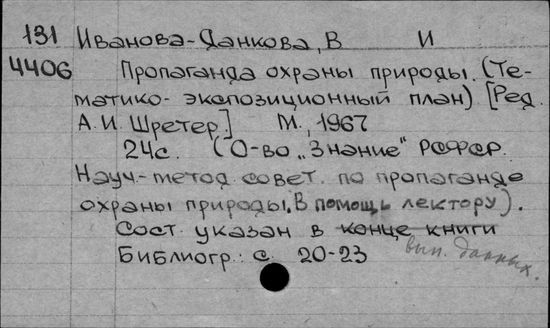 131 Иванова-Данкова, В И
4406 Пропаганда охраны природы. (Те-
матико-экспозиционный план) [Ред.
А. И. Шретер] М., 1967
24с. (О-во „Знание" РСФСР.
Науч.-метод совет. по пропаганде
охраны природы. В помощь лектору).
Сост. указан в конце книги
вып. данных.
Библиогр: с. 20-23